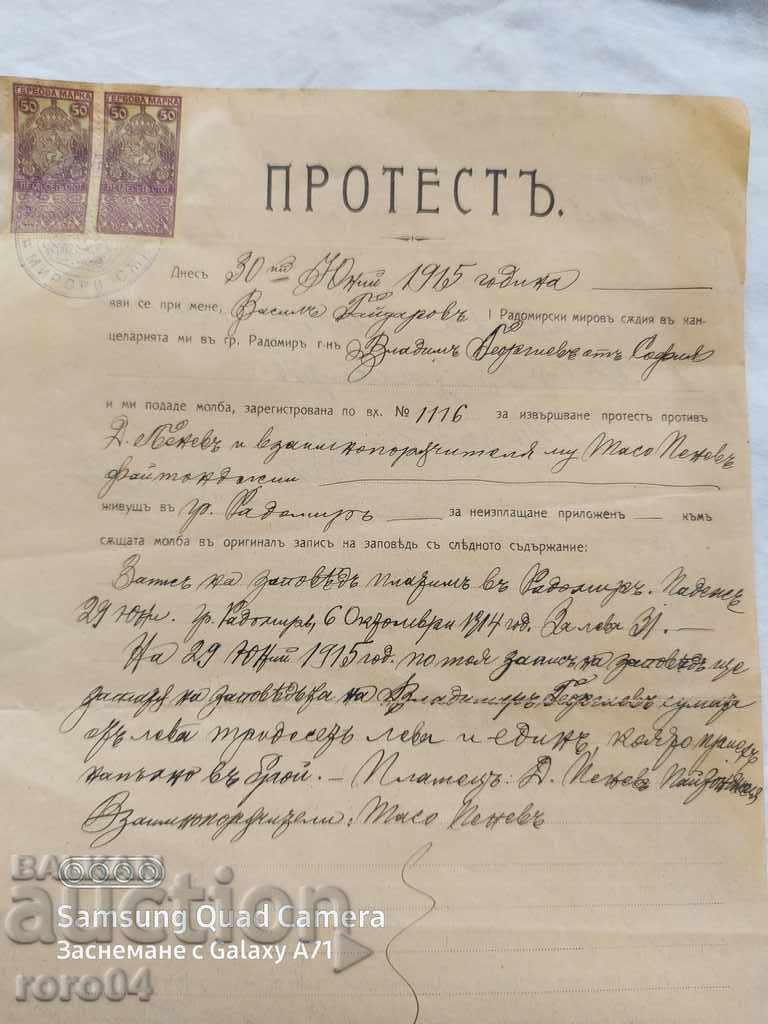 ГЕРБОВА МАРКА ГЕРБОВА МАРКА
50 50 50 50
ПЕТДЕСЕТЬ СТОТ. ПЕТДЕСЕТЬ СТОТ.
МИРОВИ СѪ
ПРОТЕСТЪ.
Днесъ 30ий Юний 1915 година
яви се при мене, Василъ Гайдаровъ I Радомирски мировъ сѫдия въ кан-
целарията ми въ гр. Радомир г-нъ Владимъ Георгиевъ отъ София
и ми подаде молба, зарегистрована по вх. № 1116 за извършване протестъ противъ
Д. Пеневъ и взаимнопорѫчителя му Тасо Пеневъ
файтонджии
живущ въ гр. Радомиръ за неизплащане приложен къмъ
сѫщата молба въ оригиналъ записъ на заповѣдь съ слѣдното съдържание:
Записъ на заповѣдь платимъ въ Радомиръ. Падежъ
29 Юни. гр. Радомиръ, 6 Октомври 1914 год. За лева 31.—
На 29 Юний 1915 год. по тоя записъ на заповѣдь ще
на заповѣдьта на Владимиръ Георгиевъ сумата
лева тридесеть лева и единъ, която
напълно въ брой. — Платецъ: Д. Пеневъ
Взаимнопорѫчители: Тасо Пеневъ
БАЛКАН
auction
Samsung Quad Camera
Заснемане с Galaxy A71
roro04